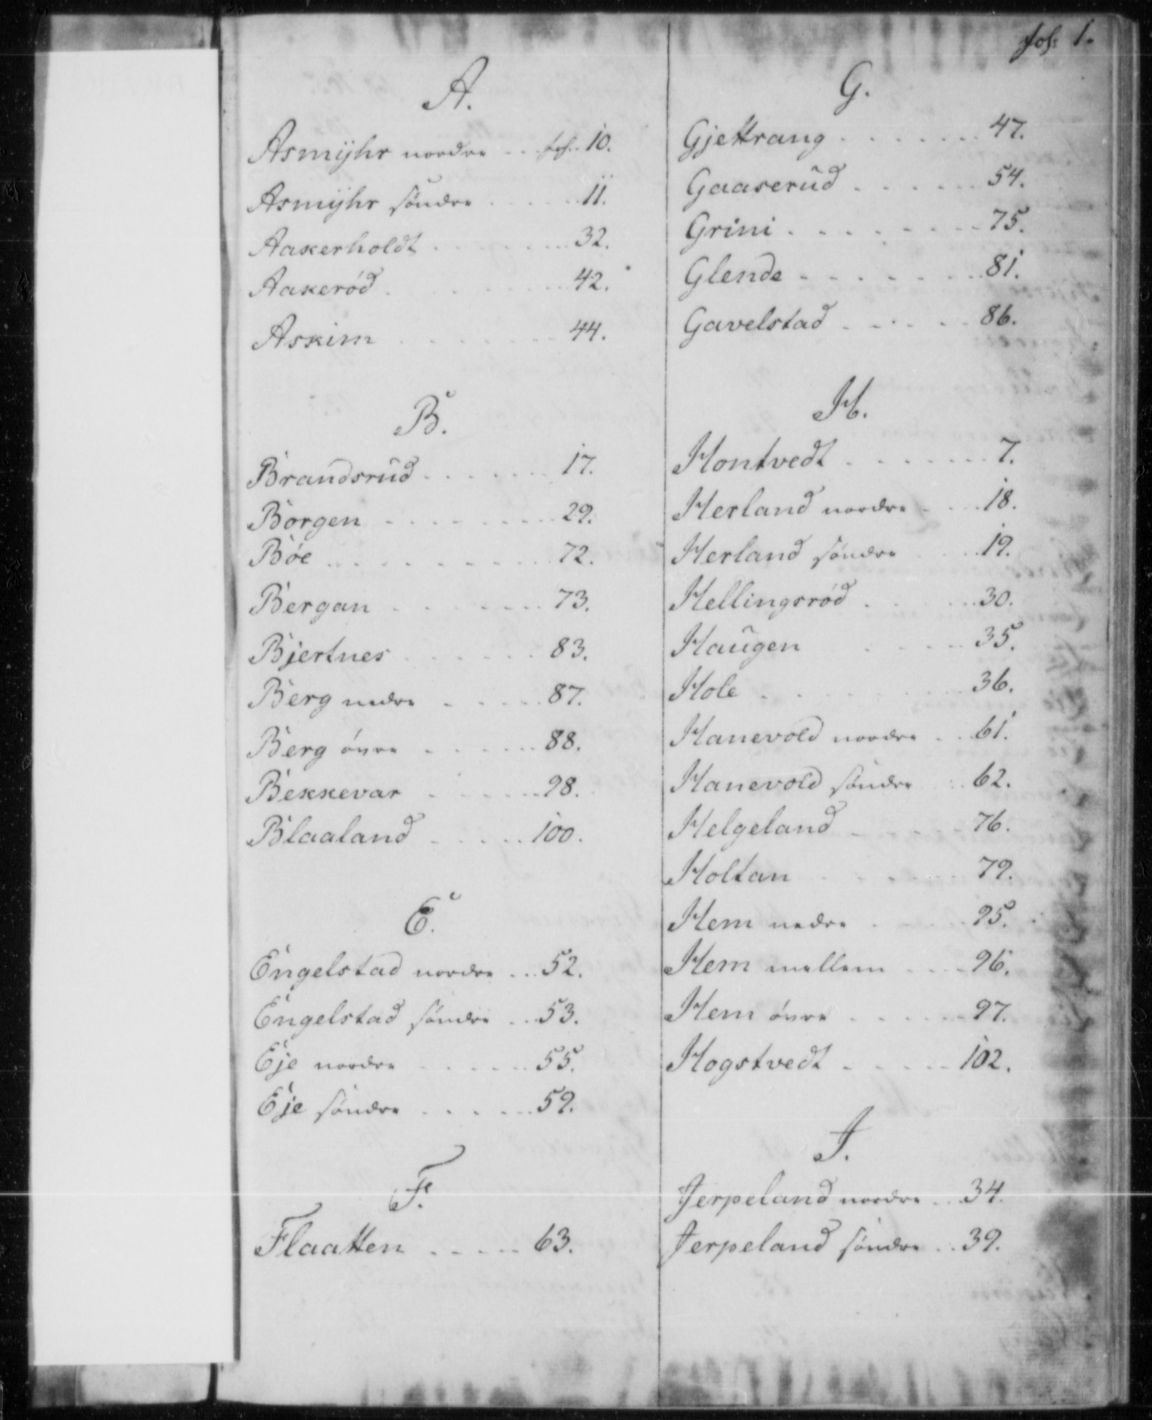 fol: 1.
A.
Asmijhr nordre .. fol. 10.
Asmijhr söndre ..... 11.
Aakerholdt ....... 32.
Aakerød ........ 42.
Askim ....... 44.
B.
Brandsrud ...... 17.
Borgen ........ 29.
Bøe .......... 72.
Bergan ....... 73.
Bjertnes ...... 83.
Berg nedre ..... 87.
Berg övre ...... 88.
Bekkevar ...... 98.
Blaaland ..... 100.
E.
Engelstad nordre ... 52.
Engelstad söndre .. 53.
Eje nordre ...... 55.
Eje söndre ..... 59.
F.
Flaatten ..... 63.
G.
Gjettrang ...... 47.
Gaaserud ...... 54.
Grini ........ 75.
Glende ....... 81.
Gavelstad ..... 86.
H.
Hontvedt ...... 7.
Herland nordre ... 18.
Herland söndre ... 19.
Hellingsrød ..... 30.
Haugen ..... 35.
Hole ........ 36.
Hanevold nordre .. 61.
Hanevold söndre .. 62.
Helgeland ..... 76.
Holtan ..... 79.
Hem nedre .... 95.
Hem mellem .... 96.
Hem övre ...... 97.
Hogstvedt ..... 102.
J.
Jerpeland nordre .. 34.
Jerpeland söndre .. 39.